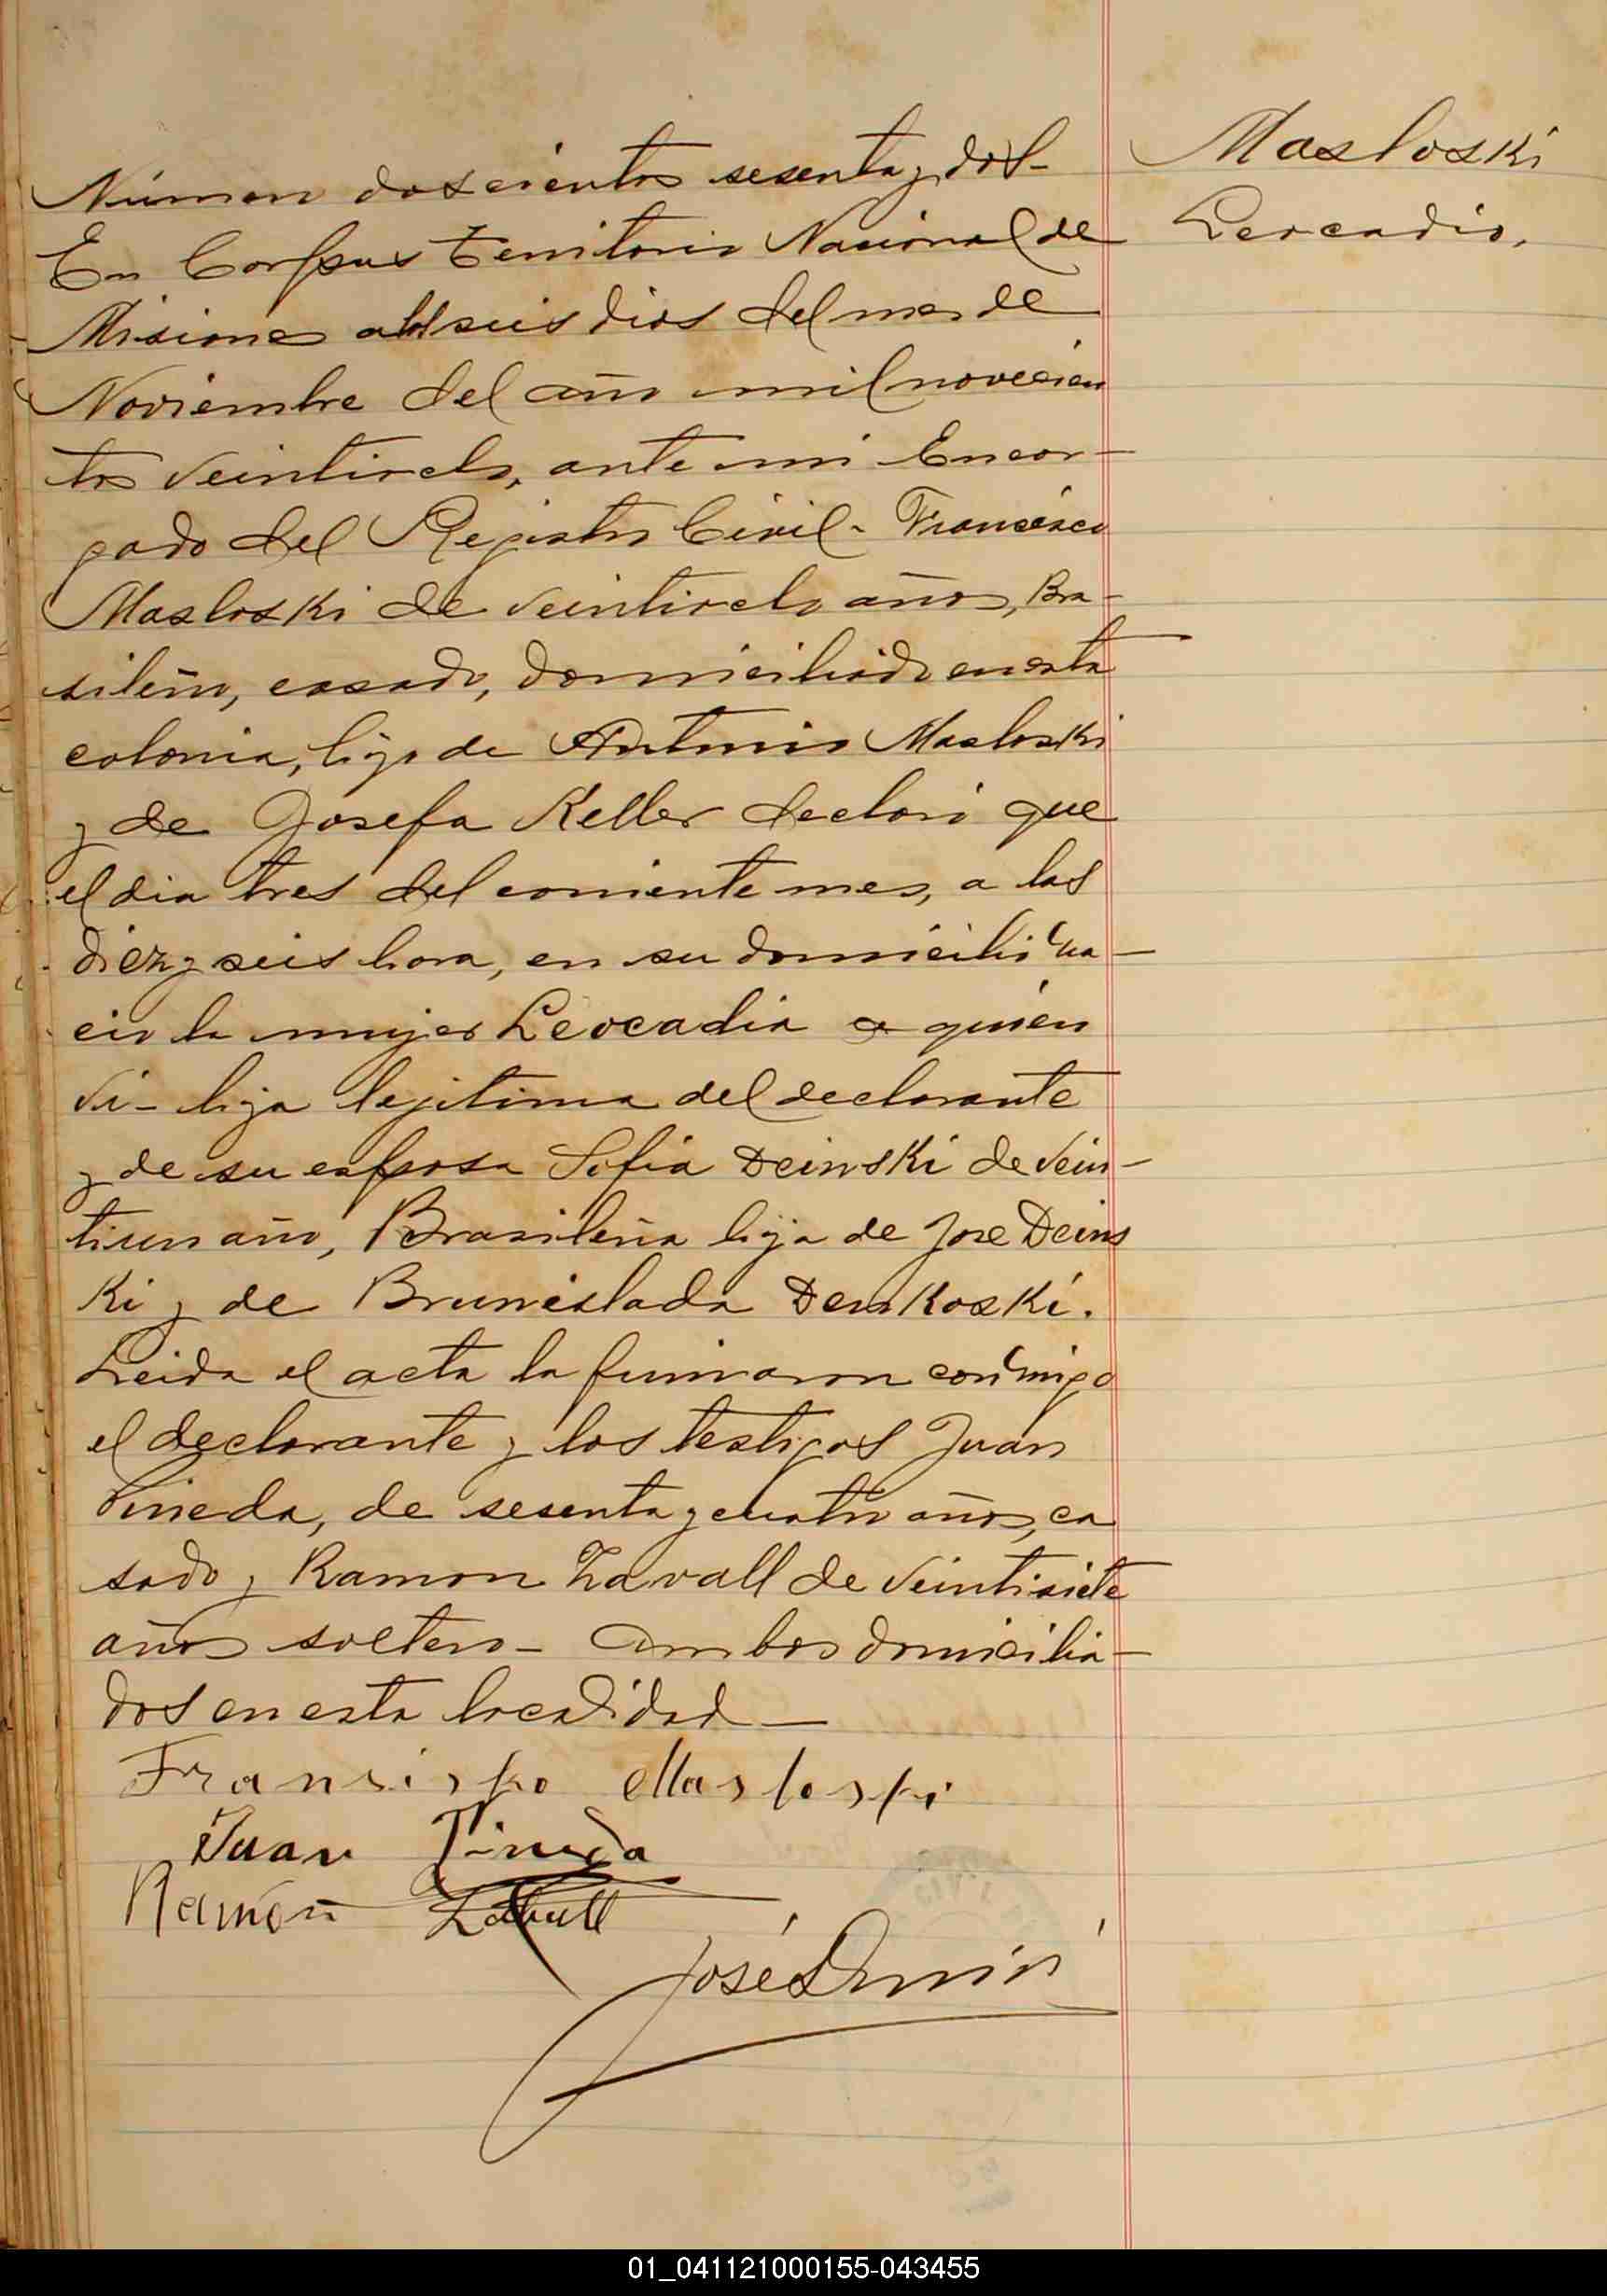 Masloski
Leocadia.
Número doscientos sesenta y dos-
En Corpus Territorio Nacional de
Misiones a los seis dias del mes de
Noviembre del año mil novecien
tos veintiocho, ante mi Encar-
gado del Registro Civil- Francisco
Masloski de veintiocho años, Bra-
sileño, casado, domiciliado en esta
colonia, hijo de Antonio Masloski
y de Josefa Keller declaró que
el dia tres del corriente mes, a las
diez y seis hora, en su domicilio na-
cio la mujer Leocadia a quién
vi- hija legitima del declarante
y de su esposa Sofia Deinski de vein-
tiun año, Brasileña hija de Jose Deins
ki y de Bruneslada Demkoski.
Leida el acta la firmaron conmigo
el declarante y los testigos Juan
Pineda, de sesenta y cuatro años, ca
sado y Ramon Zavall de veintisiete
años soltero- ambos domicilia-
dos en esta localidad-
Fransisko Masloski
Juan Pineda
Ramón
José
01_041121000155-043455